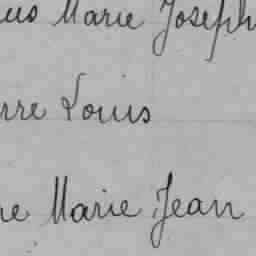 Marie Joseph
Louis
Marie Jean